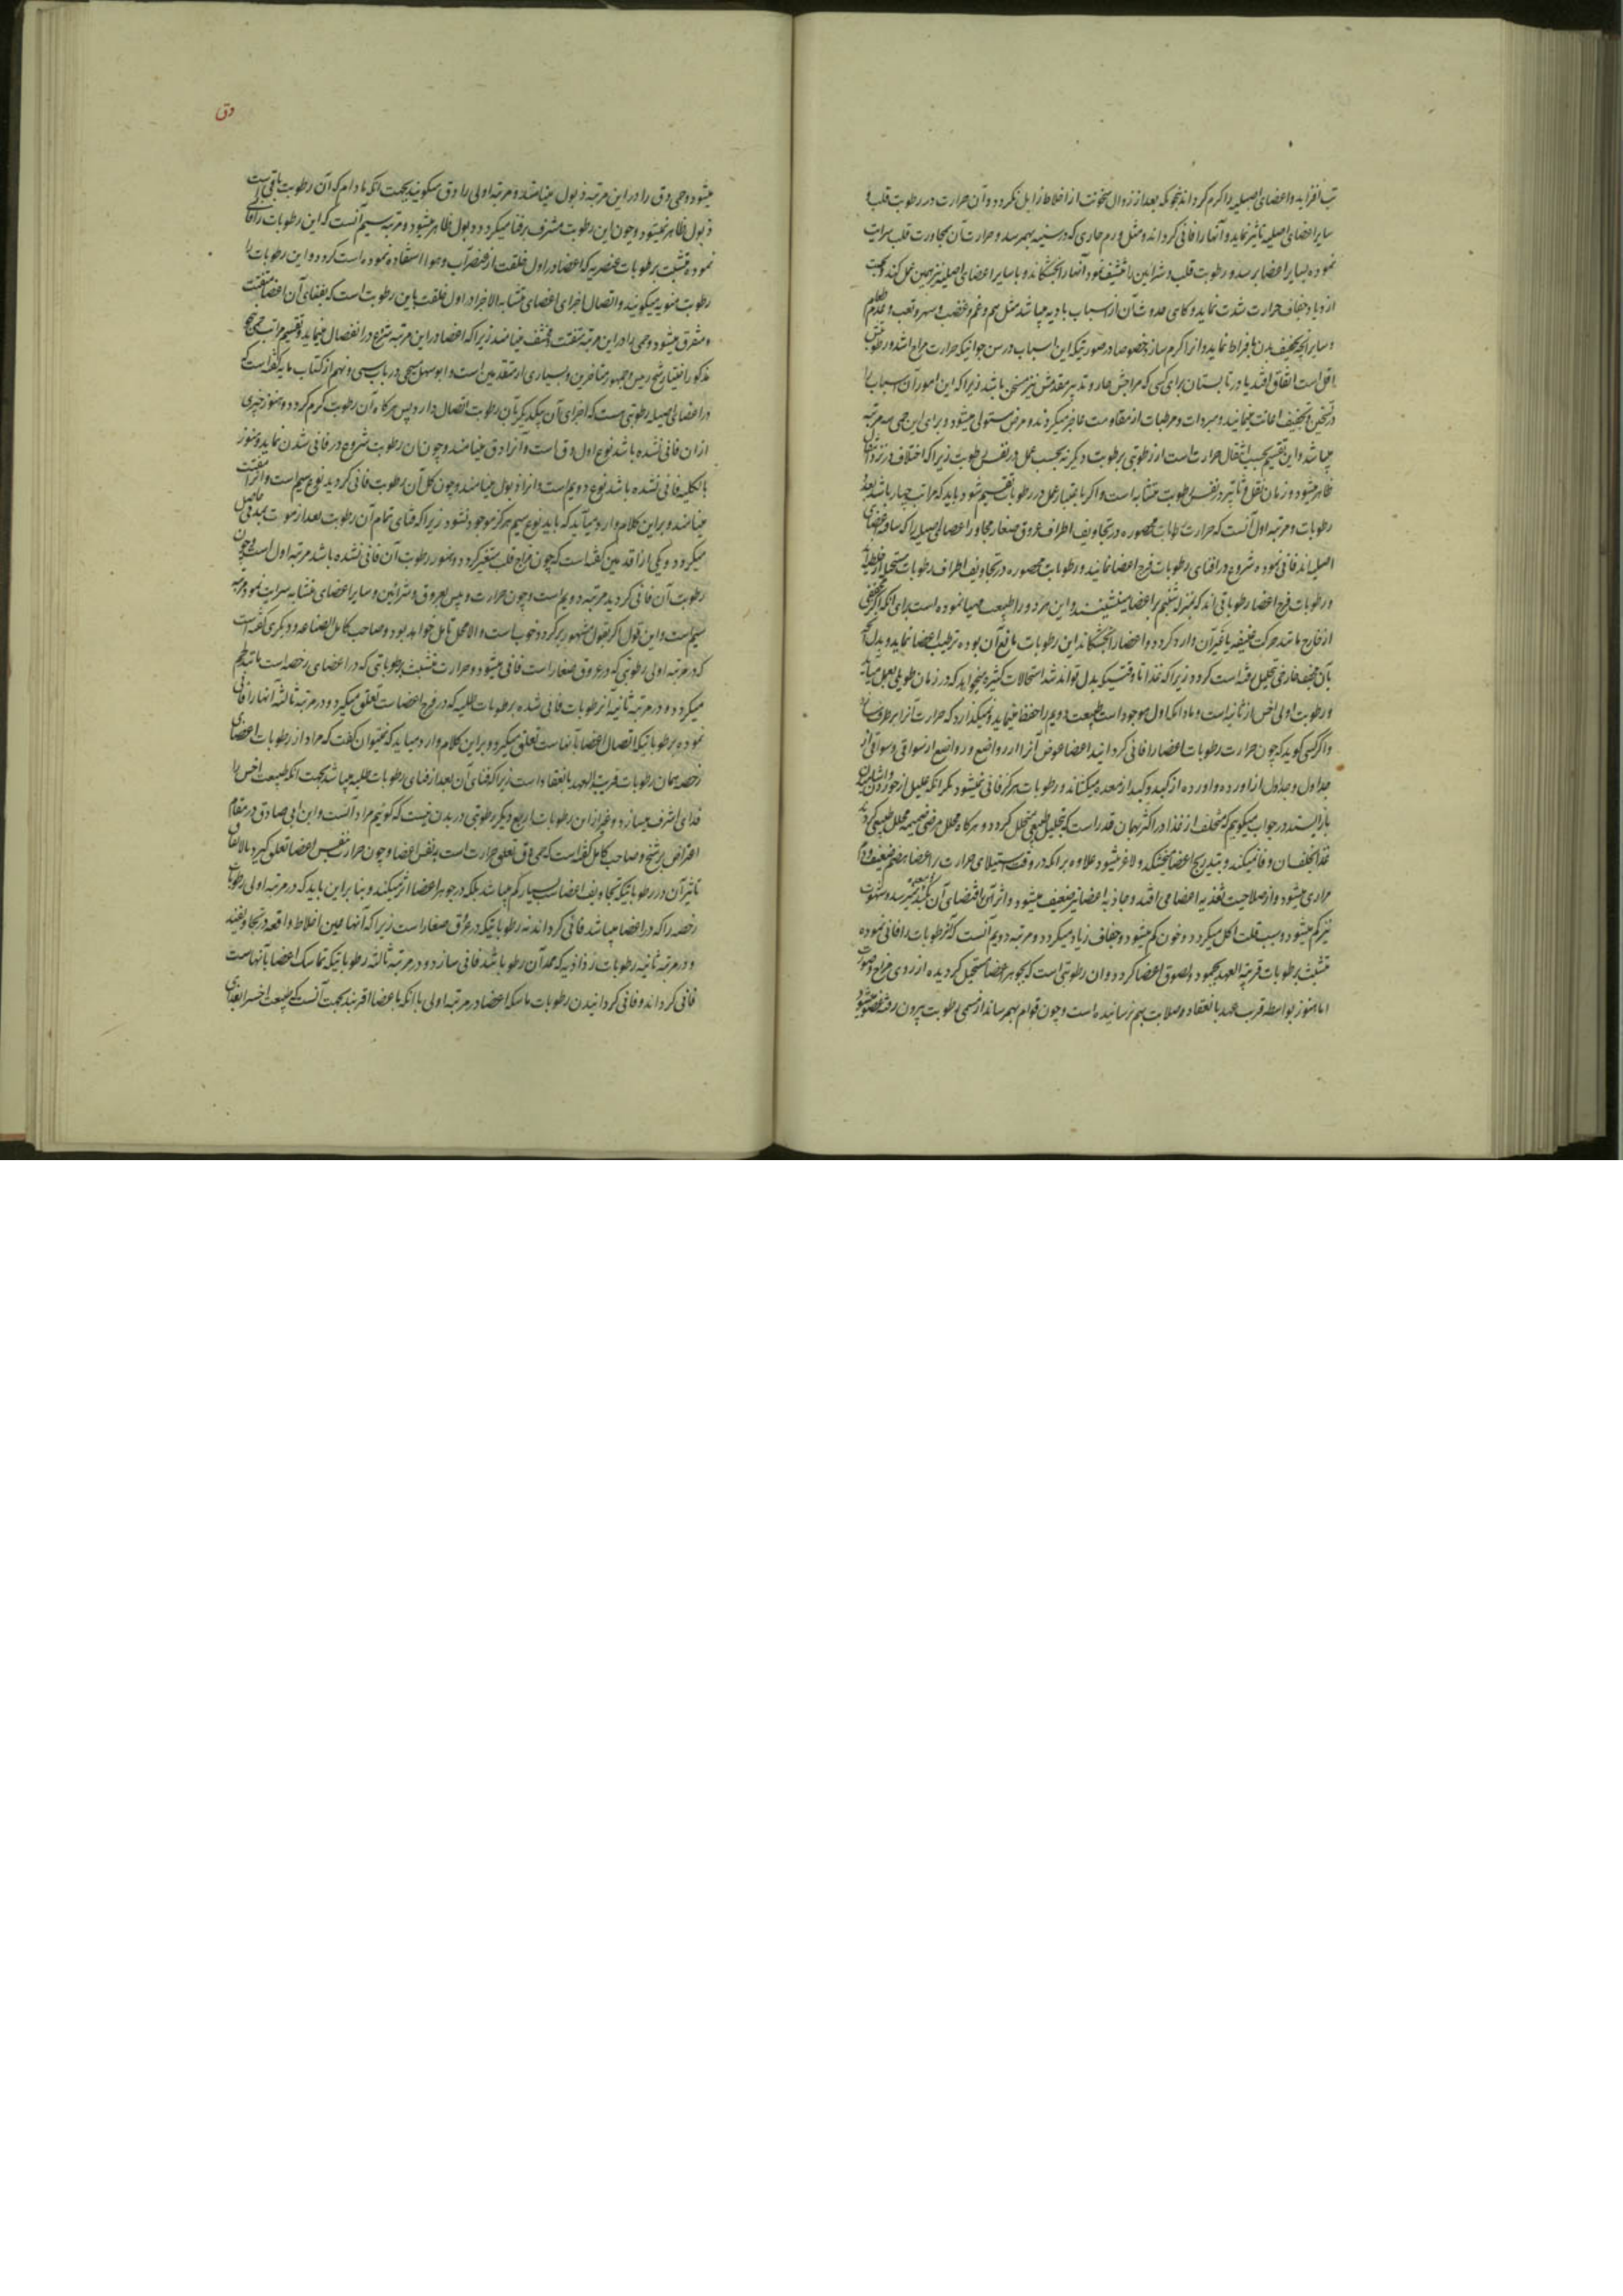 تب افزاید و اعضای اصیله را گرم گرداند بنحویکه بعد از زوال سخونت از اخلاط زایل نگردد و آن حرارت در رطوبت قلب و
سایر اعضای اصلیه تاثیر نماید و آنها را فانی گرداند و مثل ورم حاری که در سینه بهمرسد و حرارت آن بمجاورت قلب سرایت
نموده بسایر اعضا برسد و رطوبت قلب و شرائین را تنشیف نمود آنها را بخشکاند و با سایر اعضای اصلیه نیز همین عمل کند و بجهت
ازدیاد جفاف حرارت شدت نماید و گاهی حدوث آن از اسباب بادیه میباشد مثل هم و غم و غضب و سهر و تعب و عدم طعام
و سایر آنچه تجفیف بدن بافراط نماید و آنرا گرم سازد خصوصا در صورتیکه این اسباب در سن جوانیکه حرارت مزاج اشد و رطوبتش
اقل است اتفاق افتد یا در تابستان برای کسی که مزاجش حار و تدبیر مقدمش نیز مسخن باشد زیرا که این امور آن اسباب را
در تسخین و تجفیف اعانت مینمایند و مبردات و مرطبات از مقاومت عاجز میگردند و مرض مستولی میشود و برای این حمی سه مرتبه
میباشد و این تقسیم بحسب انتقال حرارت است از رطوبتی برطوبت دیگر نه بحسب عمل در نفس رطوبت زیرا که اختلاف در نزد انتقال
ظاهر میشود و زمان نقل و تاثیر در نفس رطوبت متشابه است و اگر باعتبار عمل در رطوبات تقسیم شود باید که مراتب چهار باشد بعدد
رطوبات و مرتبه اول آنست که حرارت رطوبات محصوره در تجاویف اطراف عروق صغار مجاور اعضای اصیله را که ساقیه اعضای
اصیل اند فانی نموده شروع در افنای رطوبات فرج اعضا نمایند و رطوبات محصوره در تجاویف اطراف رطوبات مستحیل از خلط اند
و رطوبات فرج اعضا رطوباتی اند که بمنزله شبنم بر اعضا مینشینند و این هر دو را طبیعت مهیا نموده است برای آنکه اگر مجففی
از خارج مانند حرکت عنیفه یا غیر آن وارد گردد و اعضا را بخشکاند این رطوبات مانع آن بوده ترطیب اعضا نماید و بدل آنچه
بآن مجفف خارجی تحلیل رفته است گردد زیرا که غذا تا وقتیکه بدل تواند شد استحالات کثیره میخواهد که در زمان طویلی بعمل میآید
و رطوبت اولی اخس از ثانیه است و مادامکه اول موجود است طبیعت دویم را حفظ مینماید و نمیگذارد که حرارت آنرا برطرف سازد
و اگر کسی گوید که چون حرارت رطوبات اعضا را فانی گردانید اعضا عوض آنرا از رواضع و رواضع از سواقی و سواقی از
جداول و جداول از اورده و اورده از کبد و کبد از معده میکشاند و رطوبات هرگز فانی نمیشود مگر آنکه علیل از خوردن و آشامیدن
باز ایستد در جواب میگویم که متخلف از غذا در اکثر بهمان قدر است که بتحلیل طبیعی متحلل گردد و هرگاه محلل مرضی ضمیمه محلل طبیعی گردد
غذا بتخلف آن وفا نمیکند و بتدریج اعضا میخشکد و لاغر میشود علاوه بر آنکه در وقت استیلای حرارت بر اعضا هضم ضعیف و دم
مراری میشود و از صلاحیت تغذیه اعضا می افتد و جاذبه اعضا نیز ضعیف میشود و اثر آن باقتضای آن بکبد و معده نیز میرسد و شهوت
نیز کم میشود و بسبب قلت اکل میگردد و خون کم میشود و جفاف زیاد میگردد و مرتبه دویم آنست که آنرطوبات را فانی نموده
متشبث برطوبات قریبة العهد بجمود و لصوق اعضا گردد و آن رطوبتی است که بجوهر اعضا مستحیل گردیده از روی مزاج و صورت
اما هنوز بواسطه قرب عهد بانعقاد و صلابت بهم نرسانیده است و چون قوام بهم رساند از اسمی رطوبت بیرون رفته عضو میشود
دق
میشود و حمی دق را در این مرتبه ذبول مینامند و مرتبه اولی را دق میگویند بجهت آنکه مادام که آن رطوبت باقی است
ذبول ظاهر نمیشود و چون این رطوبت مشرف بر فنا میگردد ذبول ظاهر میشود و مرتبه سیم آنست که این رطوبات را فانی
نموده متشبث برطوبات عنصریه که اعضا در اول خلقت از عنصر آب و هوا استفاده نموده است گردد و این رطوبات را
رطوبت منویه میگویند و اتصال اجزای اعضای متشابه الاجزا در اول خلقت باین رطوبت است که بفنای آن اعضا متفتت
و متفرق میشود و حمی را در این مرتبه مفتت و مخشف مینامند زیرا که اعضا در این مرتبه شروع در انفصال مینماید و تقسیم مراتب حمی بنحو
مذکور اختیار شیخ رئیس و جمهور متأخرین و بسیاری از متقدمین است و ابوسهل مسیحی در باب سی و نهم از کتاب مایه گفته است که
در اعضای اصیله رطوبتی هست که اجزای آن بیکدیگر بآن رطوبت اتصال دارد پس هرگاه آن رطوبت گرم گردد و هنوز چیزی
از آن فانی نشده باشد نوع اول دق است و آنرا دق مینامند و چون آن رطوبت شروع در فانی شدن نماید و هنوز
بالکلیه فانی نشده باشد نوع دویم است و آنرا ذبول مینامند و چون کل آن رطوبت فانی گردید نوع سیم است و آنرا مفتت
مینامند و بر این کلام وارد میآید که باید نوع سیم هرگز موجود نشود زیرا که فنای تمام آن رطوبت بعد از موت بمدتی حاصل
میگردد و یکی از اقدمین گفته است که چون مزاج قلب متغیر گردد و هنوز رطوبت آن فانی نشده باشد مرتبه اول است و چون
رطوبت آن فانی گردید مرتبه دویم است و چون حرارت و یبس بعروق و شرائین و سایر اعضای متشابه سرایت نمود مرتبه
سیم است و این قول اگر بقول مشهور برگردد خوب است و الا محل تامل خواهد بود و صاحب کامل الصناعه و دیگری گفته است
که در مرتبه اولی رطوبتی که در عروق صغار است فانی میشود و حرارت متشبث برطوباتی که در اعضای رخصه است مانند لحم
میگردد و در مرتبه ثانیه آنرطوبات فانی شده برطوبات طلیه که در فرج اعضا است تعلق میگیرد و در مرتبه ثالثه آنها را فانی
نموده برطوباتیکه اتصال اعضا بآنهاست تعلق میگیرد و بر این کلام وارد میآید که نمیتوان گفت که مراد از رطوبات اعضای
رخصه همان رطوبات قریبة العهد بانعقاد است زیرا که فنای آن بعد از فنای رطوبات طلیه میباشد بجهت آنکه طبیعت اخس را
فدای اشرف میسازد و غیر از این رطوبات اربع دیگر رطوبتی در بدن نیست که گوئیم مراد آنست و ابن ابی صادق در مقام
اعتراض بر شیخ و صاحب کامل گفته است که حمی دق تعلق حرارت است بنفس اعضا و چون حرارت بنفس اعضا تعلق گیرد بالاتفاق
تاثیر آن در رطوباتیکه در تجاویف اعضاست بسیار کم میباشد بلکه در جوهر اعضا اثر میکند و بنا بر این باید که در مرتبه اولی رطوبات
رخصه را که در اعضا میباشد فانی گرداند نه رطوباتیکه در عروق صغار است زیرا که آنها عین اخلاط واقعه در تجاویفند
و در مرتبه ثانیه رطوبات رذاذیه که معد آن رطوبا باشد فانی سازد و در مرتبه ثالثه رطوباتیکه تماسک اعضا بآنهاست
فانی گرداند و فانی گردانیدن رطوبات ماسکه اعضا در مرتبه اولی با آنکه باعضا اقربند بجهت آنست که طبیعت اخس را فدای